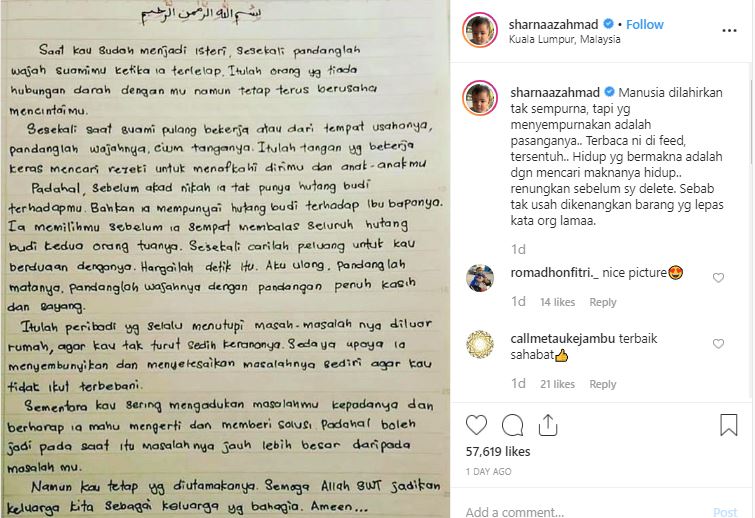 بسم الله الرحمن الرحيم
Saat kau sudah menjadi isteri, sesekali pandanglah
wajah suamimu ketika ia terlelap. Itulah orang yg tiada
hubungan darah dengan mu namun tetap terus berusaha
mencintaimu.
Sesekali saat suami pulang bekerja atau dari tempat usahanya,
pandanglah wajahnya, cium tanganya. Itulah tangan yg bekerja
keras mencari rezeki untuk menafkahi dirimu dan anak-anakmu
Padahal, sebelum akad nikah ia tak punya hutang budi
terhadapmu. Bahkan ia mempunyai hutang budi terhadap Ibu baponya.
Ia memilihmu sebelum ia sempat membalas seluruh hutang
budi kedua orang tuanya. Sesekali carilah peluang untuk kau
berduaan denganya. Hargailah detik itu. Aku ulang, pandanglah
matanya, pandanglah wajahnya dengan pandangan penuh kasih
dan sayang.
Itulah peribadi yg selalu menutupi masah-masalah nya diluar
rumah, agar kau tak turut sedih kerananya. Sedaya upaya ia
menyembunyikan dan menyelesaikan masalahnya sediri agar kau
tidak ikut terbebani.
Sementara kau sering mengadukan masalahmu kepadanya dan
berharap ia mahu mengerti dan memberi solusi. Padahal boleh
jadi pada saat itu masalahnya jauh lebih besar daripada
masalah mu.
Namun kau tetap yg diutamakanya. Semoga Allah SWT jadikan
keluarga kita sebagai keluarga yg bahagia. Ameen...
sharnaazahmad • Follow
Kuala Lumpur, Malaysia
sharnaazahmad Manusia dilahirkan
tak sempurna, tapi yg
menyempurnakan adalah
pasanganya.. Terbaca ni di feed,
tersentuh.. Hidup yg bermakna adalah
dgn mencari maknanya hidup..
renungkan sebelum sy delete. Sebab
tak usah dikenangkan barang yg lepas
kata org lamaa.
1d
romadhonfitri._ nice picture😍
1d 14 likes Reply
callmetaukejambu terbaik
sahabat👍
1d 21 likes Reply
57,619 likes
1 DAY AGO
Add a comment... Post